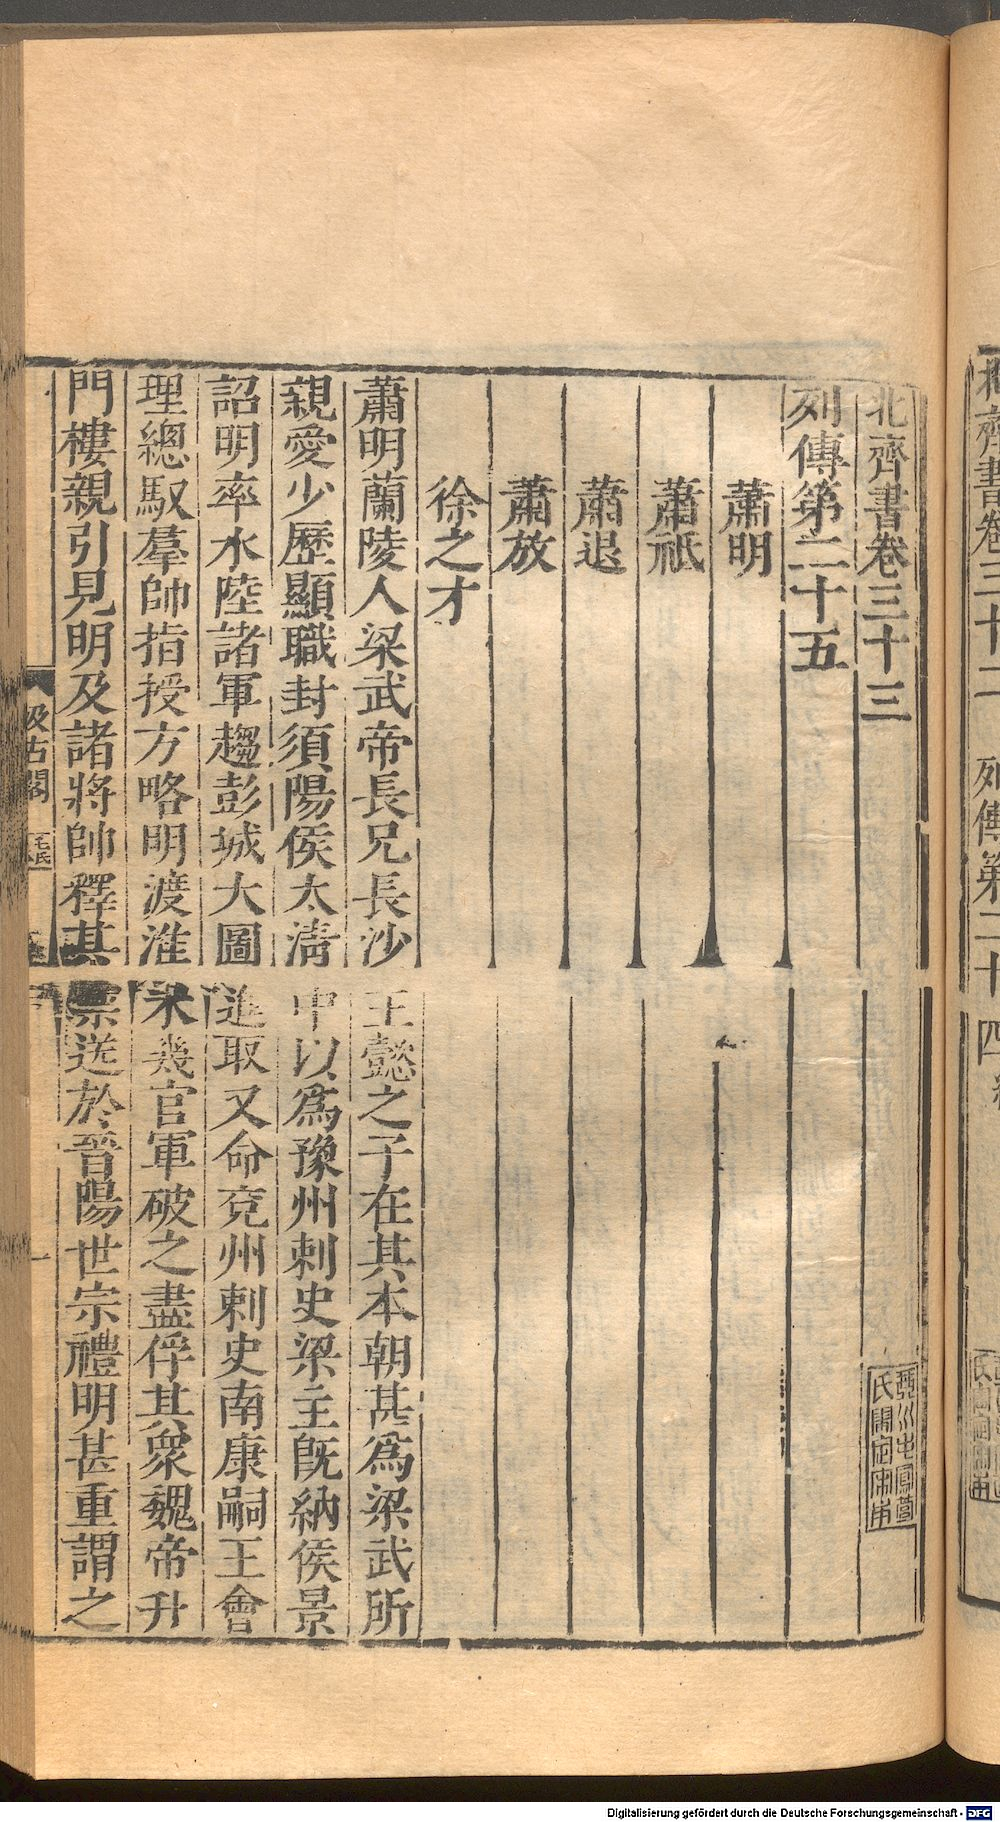 北齊書卷三十三
列傳第二十五
蕭明
蕭祗
蕭退
蕭放
徐之才
蕭明蘭陵人梁武帝長兄長沙王懿之子在其本朝甚爲梁武所
親愛少歷顯職封須陽侯太清中以爲豫州刺史梁主旣納侯景
詔明率水陸諸軍趨彭城大圖進取又命兗州刺史南康嗣王會
理總馭羣帥指授方略明渡淮未幾官軍破之盡俘其衆魏帝升
門樓親引見明及諸將帥釋其禁送於晉陽世宗禮明甚重謂之
汲古閣
毛氏
一
列傳第二十四終
Digitalisierung gefördert durch die Deutsche Forschungsgemeinschaft - DFG